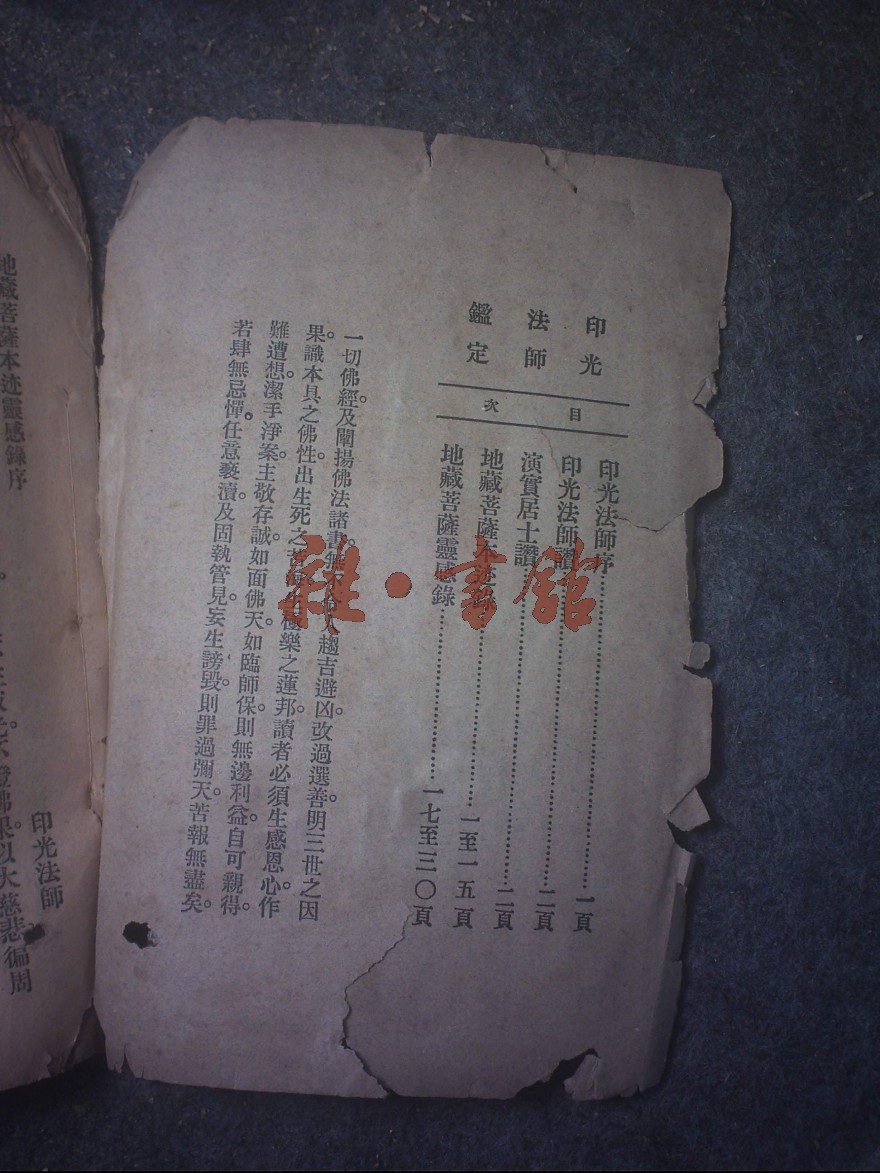 印光
法師
鑑定
目次
印光法師序⋯⋯⋯⋯⋯⋯⋯⋯一頁
印光法師讚⋯⋯⋯⋯⋯⋯⋯⋯二頁
演實居士讚⋯⋯⋯⋯⋯⋯⋯⋯二頁
地藏菩薩本迹⋯⋯⋯⋯⋯⋯一至一五頁
地藏菩薩靈感錄⋯⋯⋯⋯⋯⋯一七至三〇頁
一切佛經。及闡揚佛法諸書。無不人趨吉避凶。改過遷善。明三世之因
果。識本具之佛性。出生死之苦生極樂之蓮邦。讀者必須生感恩心。作
難遭想。潔手淨案。主敬存誠。如面佛天。如臨師保。則無邊利益。自可親得。
若肆無忌憚。任意褻瀆。及固執管見。妄生謗毀。則罪過彌天。苦報無盡矣。
雜·書館
地藏菩薩本迹靈感錄序
印光法師
佛果。以大慈悲。徧周